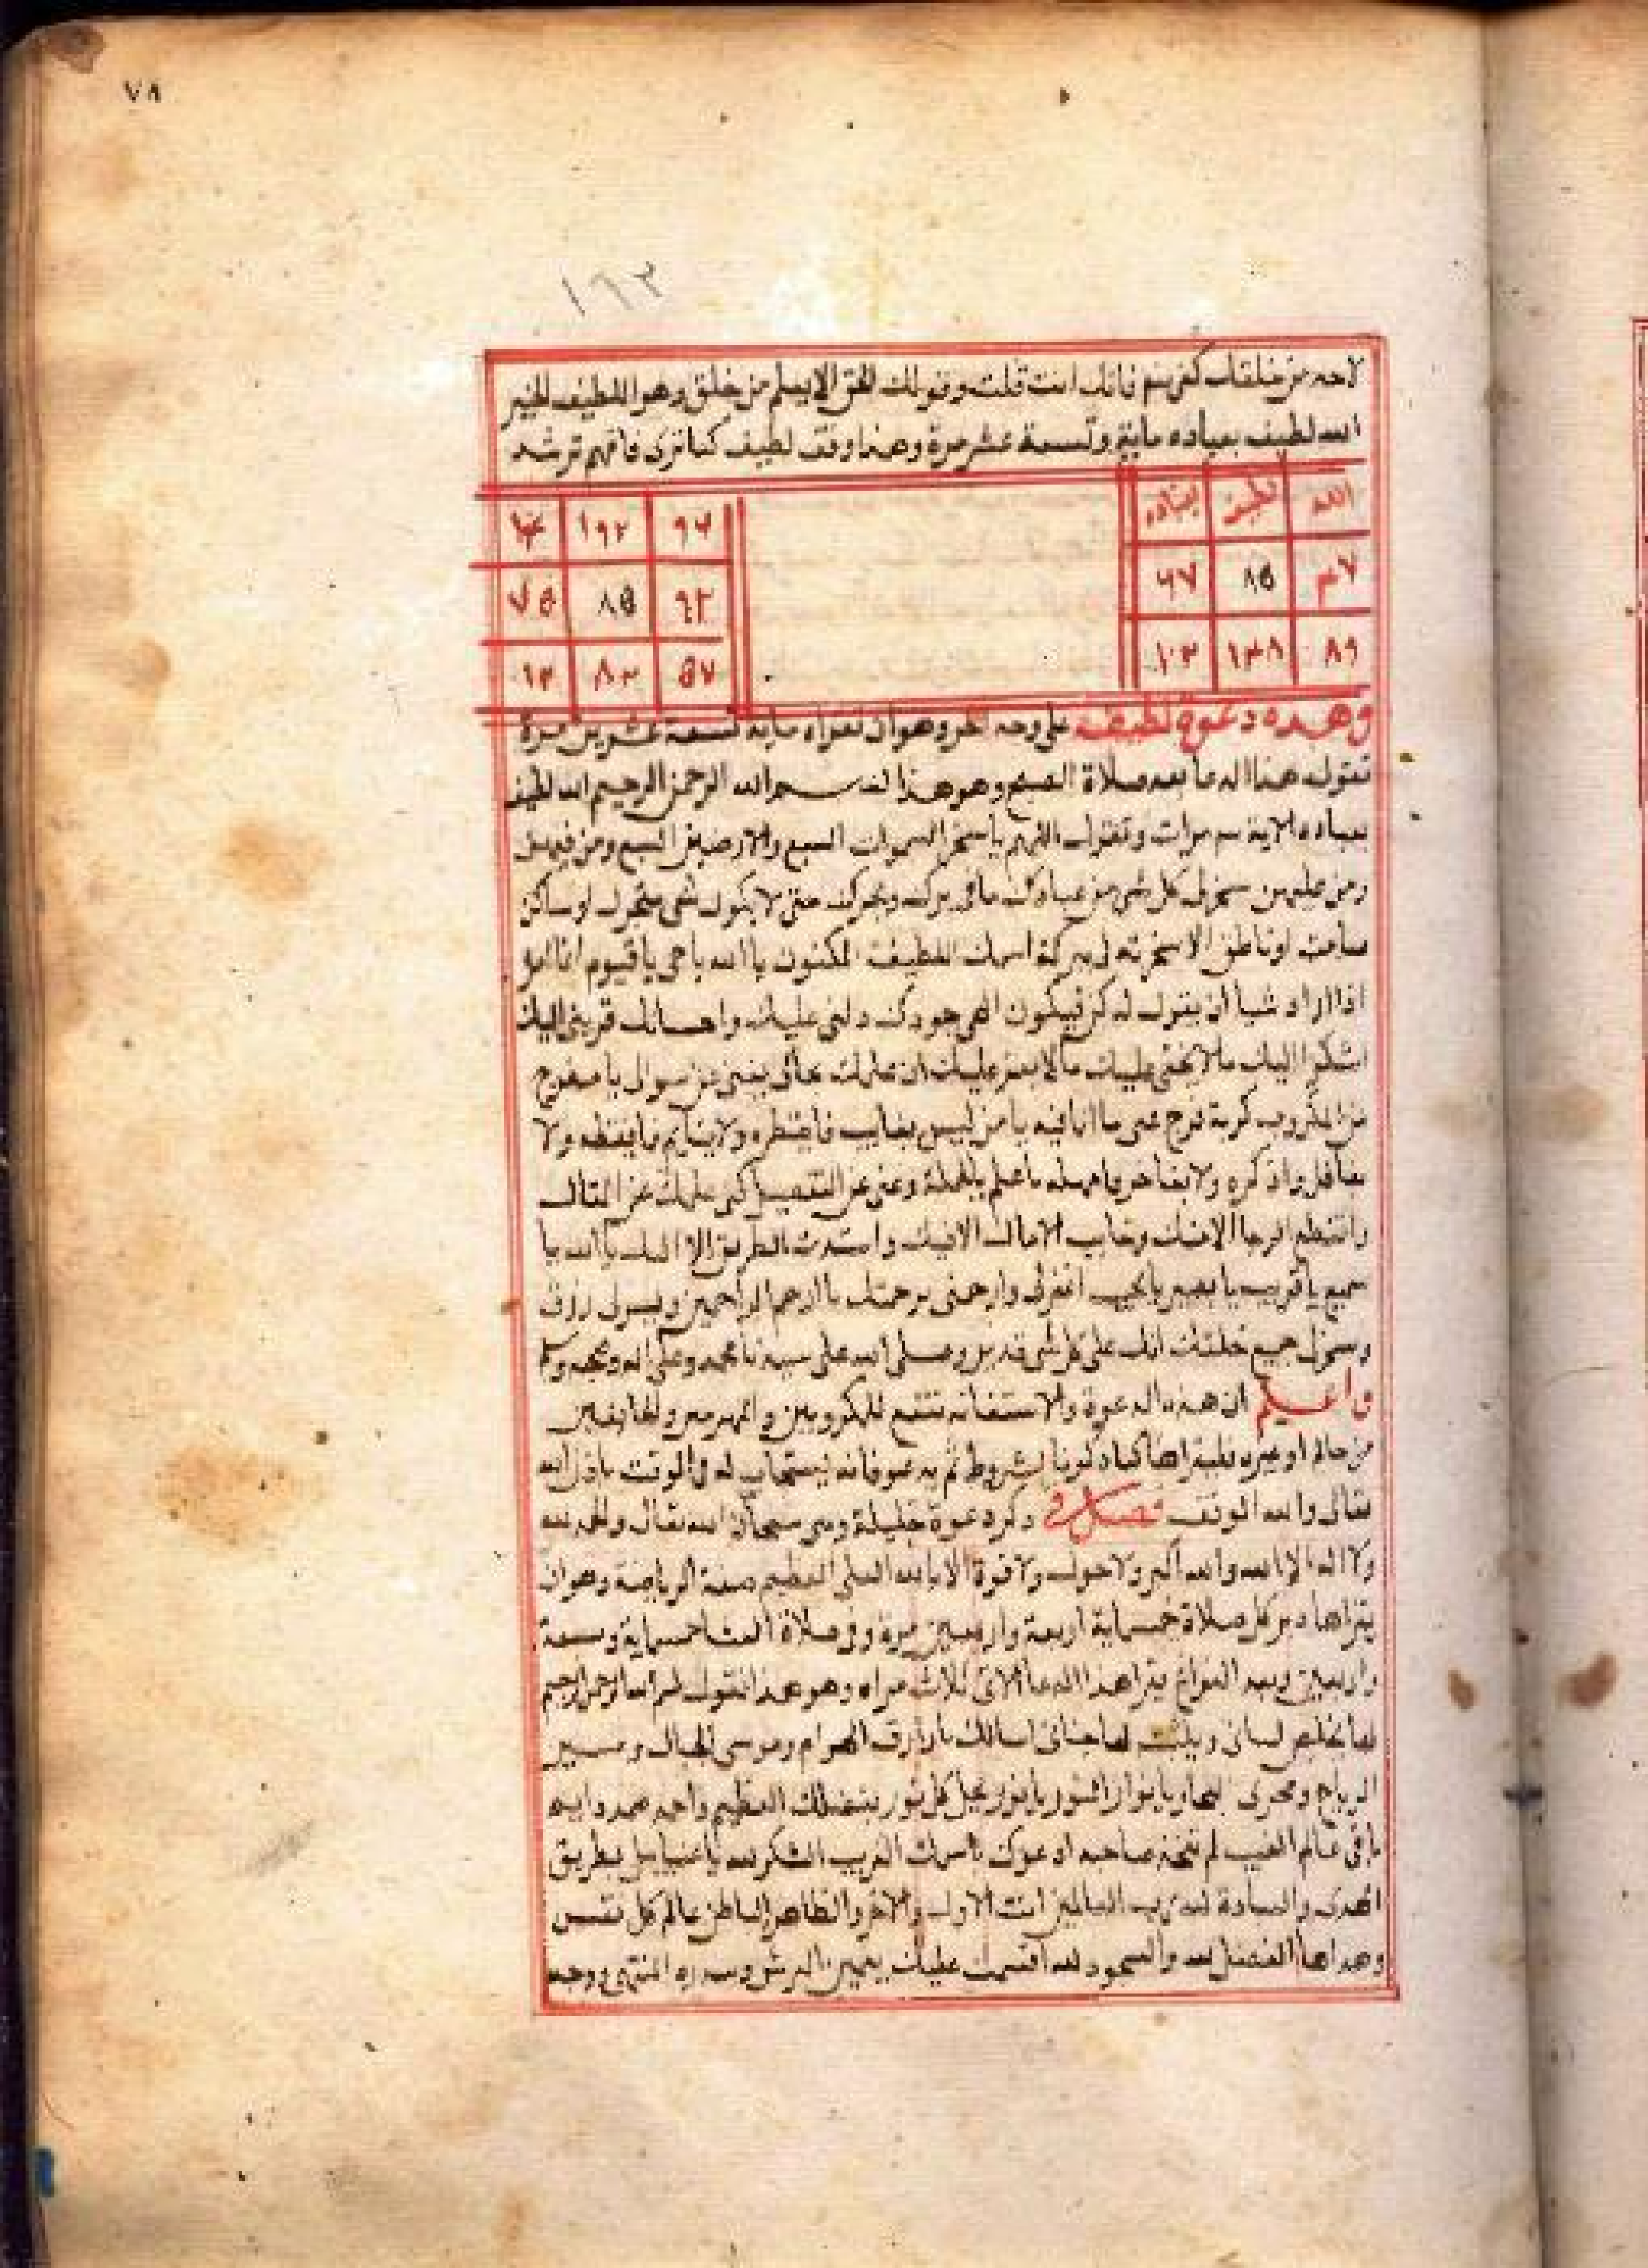 ٧٨
١٦٣
لاحد من خلقك كفر بنعم فانك انت قلت وقولك الحق الا يعلم من خلق وهو اللطيف الخبير
الله لطيف بعباده مايه وتسعة عشر مرة وهذا وفق لطيف كما ترى فافهم ترشد
الله لطيف بعباده
٨٥ ٦٧
٨٩ ١٣٨ ١٠٣
٩٧ ١٩٢
٩٣ ٨٥ ٧٥
٥٧ ٨٣ ١٣
وهذه دعوة لطيفة على وجه اخر وهو ان تقراه مايه تسعة عشرين مرة
تقول هذا الدعا بعد صلاة الصبح وهو هذا بسم الله الرحمن الرحيم الله لطيف
بعباده الاية مرات وتقول اللهم يا مسخر السموات السبع والارضين السبع ومن فيهن
ومن عليهن سخر لى كل شى من عبادك مما فى برك وبحرك حتى لا يكون شى متحرك او ساكن
صامت او ناطق الا سخرته لى ببركة اسمك اللطيف المكنون يا الله يا حى يا قيوم انما امره
اذا اراد شيا ان يقول له كن فيكون الهى جودك دلنى عليك واحسانك قربنى اليك
اشكوا اليك ما لا يخفى عليك ما لا يعسر عليك ان علمك بحالى يغنى عن سوال يا مفرج
عن المكروب كربه فرج عنى ما انا فيه يا من ليس بغايب فانتظره ولا بنايم فايقظه ولا
بغافل واذكره ولا بعاجز وامهله عالم بالجملة وغنى عن التفصيل كفى علمك عن المقال
وانقطع الرجا الا منك وخابت الامال الا فيك وانسدت الطريق الا اليك يا الله يا
سميع يا قريب يا بصير يا مجيب اغفر لى وارحمنى برحمتك يا ارحم الراحمين ويسر لى رزقى
وسخر لى جميع خلقك انك على كل شى قدير وصلى الله على سيدنا محمد وعلى اله وصحبه وسلم
واعلم ان هذه الدعوة والاستغاثه تنفع للمكروبين والمهمومين والخايفين
من ظالم او غيره فليقراها كما ذكرنا بشروط ثم يدعو فانه يستجاب له فى الوقت باذن الله
تعالى والله الموفق فصل فى ذكر دعوة جليلة وهى سبحان الله تعالى والحمد لله
ولا اله الا الله والله اكبر ولا حول ولا قوة الا بالله العلى العظيم صفة الرياضة وهو ان
يقراها دبر كل صلاة خمسماية اربعة واربعين مرة وفى صلاة العشا خمسماية وسبعة
واربعين وبعد الفراغ يقرا هذا الدعا الاتى ثلاث مراه وهو هذا تقول بسم الله الرحمن الرحيم
لسانى ويثبت بها جنانى اسالك ومرسى الجبال ومسير
الرياح ومجرى البحار يا نور النور يا نور كل نور بفضلك العظيم
ما فى عالم الغيب ادعوك باسمك القريب الشكر لله بطريق
الهدى والسادة لله رب العالمين انت الاول والاخر والظاهر والباطن عالم كل نفس
وهداها الفضل لله والسجود لله اقسمت عليك بيمين العرش وسدرة المنتهى ووجه